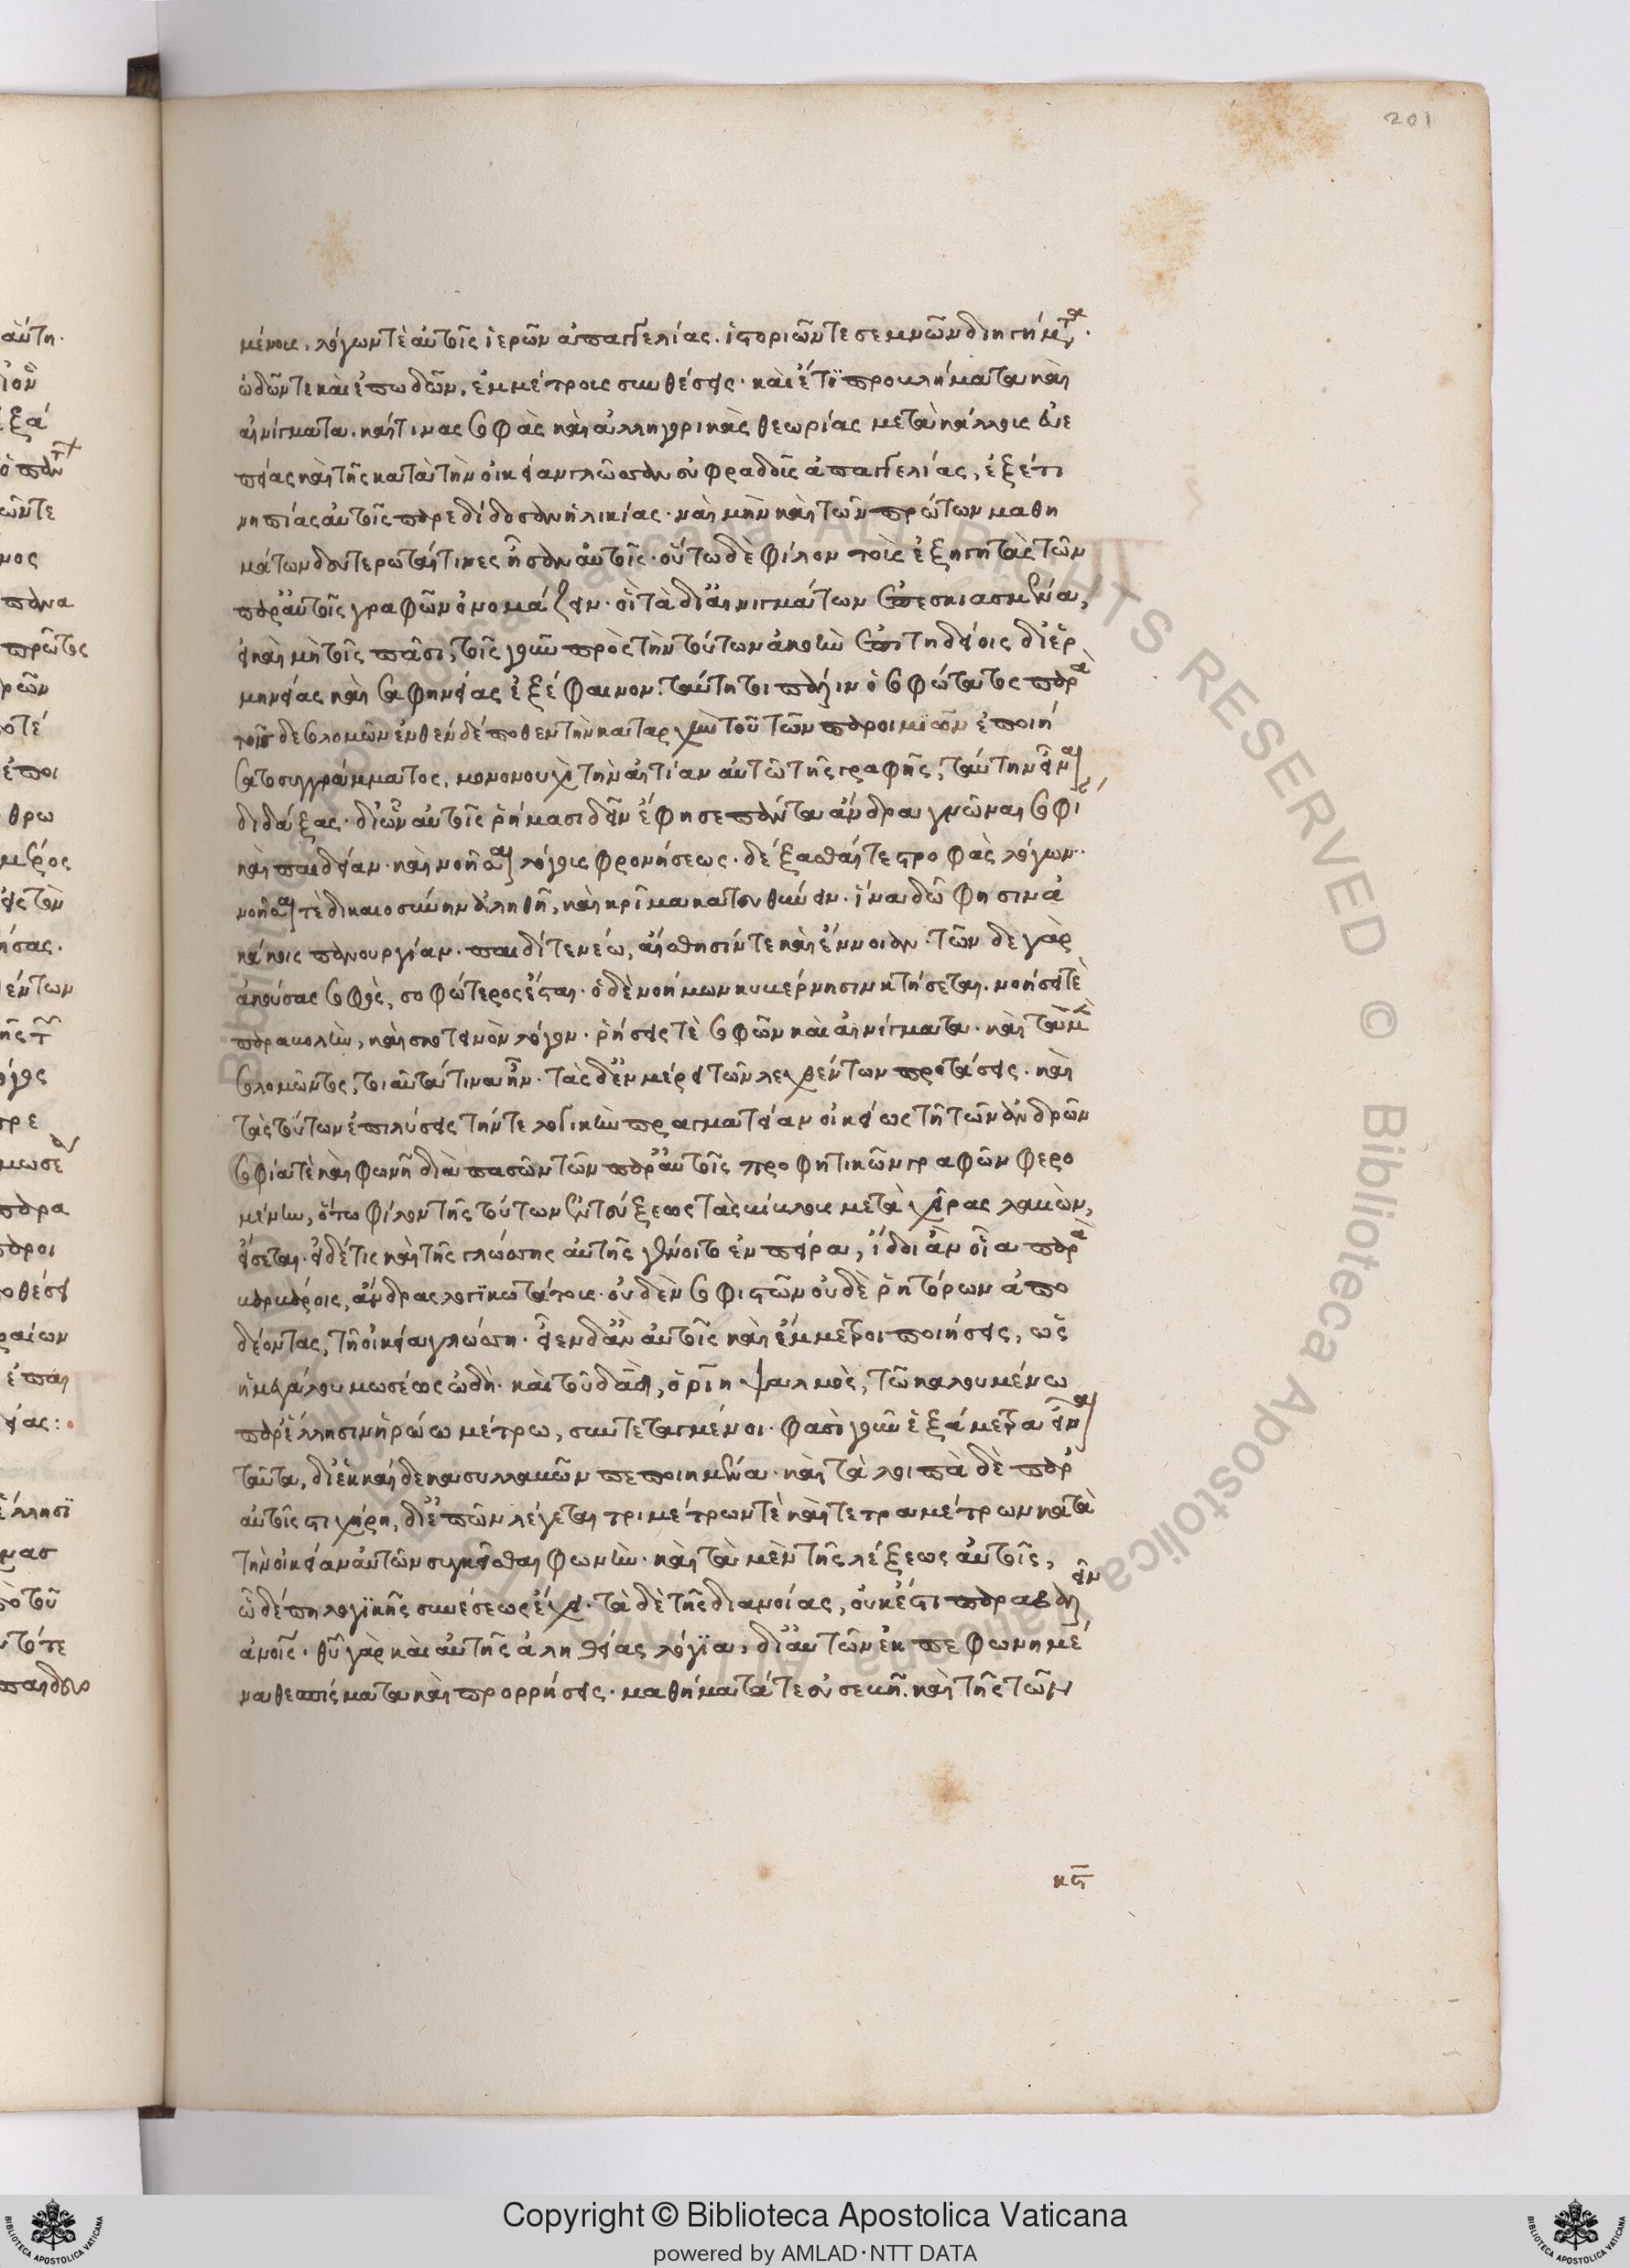 201
μένους. λόγων τὲ αὐτοῖς ἱερῶν ἀπαγγελίας. ἱστοριῶν τε σεμνῶν διηγήματα.
ᾠδῶν τε καὶ ἐπωδῶν, ἐμμέτρους συνθέσεις. καὶ ἔτϊ προβλήματα καὶ
αἰνίγματα. καί τινας σοφὰς καὶ ἀλληγορικὰς θεωρίας μετὰ κάλλους εὐε
πείας καὶ τῆς κατὰ τὴν οἰκείαν γλῶσσαν εὐφραδοῦς ἀπαγγελίας, ἐξέτι
νηπίας αὐτοῖς παρεδίδοσαν ἡλικίας. ναὶ μὴν καὶ τῶν πρώτων μαθη
μάτων δευτερωταί τινες ἦσαν αὐτοῖς. οὕτω δὲ φίλον τοὺς ἐξηγητὰς τῶν
παρ' αὐτοῖς γραφῶν ὀνομάζειν. οἳ τὰ δι' αἰνιγμάτων ἐπεσκιασμένα,
εἰ καὶ μὴ τοῖς πᾶσι, τοῖς γοῦν πρὸς τὴν τούτων ἀκοὴν ἐπιτηδείοις δι' ἑρ
μηνείας καὶ σαφηνείας ἐξέφαινον. ταύτη τοι πάλιν ὁ σοφώτατος παρὰ
τοῖσδε σολομῶν ἐνθένδέ ποθεν τὴν καταρχὴν τοῦ τῶν παροιμιῶν ἐποιή
σατο συγγράμματος, μονονουχὶ τὴν αἰτίαν αὐτῶ τῆς γραφῆς, ταύτην εἶναι
διδάξας. δι' ὧν αὐτοῖς ῥήμασι δεῖν ἔφησε πάντα ἄνδρα γνῶναι σοφί
καὶ παιδείαν. καὶ νοῆσαι λόγους φρονήσεως. δέξασθαί τε στροφὰς λόγων.
νοῆσαι τὲ δικαιοσύνην ἀληθῆ, καὶ κρῖμα κατευθύνειν. ἵνα δῶ φησιν ἀ
κάκοις πανουργίαν. παιδί τε νέω, αἴσθησίν τε καὶ ἔννοιαν. τῶν δε γὰρ
ἀκούσας σοφὸς, σοφώτερος ἔσται. ὁ δὲ νοήμων κυβέρνησιν κτήσεται. νοήσει τὲ
παραβολὴν, καὶ σκοτεινὸν λόγον. ῥήσεις τὲ σοφῶν καὶ αἰνίγματα. καὶ ταῦ μὲν
σολομῶντος, τοιαῦτά τινα ἦν. τὰς δ' ἐν μέρει τῶν λεχθέντων προτάσεις. καὶ
τὰς τούτων ἐπιλύσεις τήν τε λογικὴν πραγματείαν οἰκείως τῆ τῶν ἀνδρῶν
σοφία τὲ καὶ φωνῆ διὰ πασῶν τῶν παρ' αὐτοῖς προφητικῶν γραφῶν φερο
μένην, ὅτω φίλον τῆς τούτων ἐντεύξεως τὰς βίβλους μετὰ χεῖρας λαβὼν,
εἴσεται. εἰ δέ τις καὶ τῆς γλώσσης αὐτῆς γένοιτο ἐν πείρα, ἴδοι ἂν οἷα παρὰ
βαρβάροις, ἄνδρας λογϊκωτάτους. οὐδὲν σοφιστῶν οὐδὲ ῥητόρων ἀπο
δέοντας, τῆ οἰκεία γλώσση. εἶεν δ' ἂν αὐτοῖς καὶ ἔμμετροι ποιήσεις, ὡς
ἡ μεγάλου μωσέως ὠδή. καὶ τοῦ δαδ, ὁ ριη ψαλμὸς, τῶ καλουμένω
παρ' ἕλλησιν ἡρώω μέτρω, συντεταγμένοι. φασὶ γοῦν ἑξάμετρα εἶναι
ταῦτα, δι' ἑκκαίδεκα συλλαβῶν πεποιημένα. καὶ τὰ λοιπὰ δὲ παρ'
αὐτοῖς στιχήρη, δι' ἐπῶν λέγεται τριμέτρων τὲ καὶ τετραμέτρων κατὰ
τὴν οἰκείαν αὐτῶν συγκεῖσθαι φωνήν. καὶ τὰ μὲν τῆς λέξεως αὐτοῖς,
ὧδέ πη λογϊκῆς συνέσεως ἔχει. τὰ δὲ τῆς διανοίας, οὐκ ἔστι παραβαλεῖν
ἀνοις. θῦ γὰρ καὶ αὐτῆς ἀληθείας λόγϊα, δι' αὐτῶν ἐκπεφωνημέ
να θεσπίσματα καὶ προρρήσεις. μαθήματά τε εὐσεβῆ. καὶ τῆς τῶν
κϛ